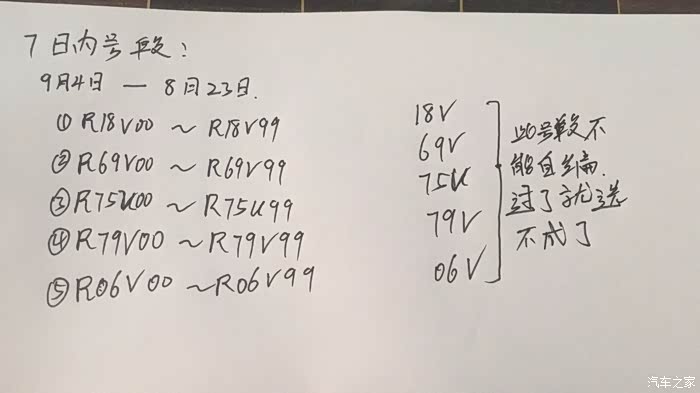 7日内号段：
9月4日 — 8月23日.
① R18V00 ~ R18V99
② R69V00 ~ R69V99
③ R75U00 ~ R75U99
④ R79V00 ~ R79V99
⑤ R06V00 ~ R06V99
18V
69V
75U
79V
06V
此号段不
能自编.
过了就选
不成了
汽车之家